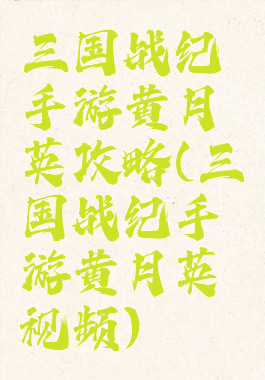 三国战纪
手游黄月
英攻略(三
国战纪手
游黄月英
视频)